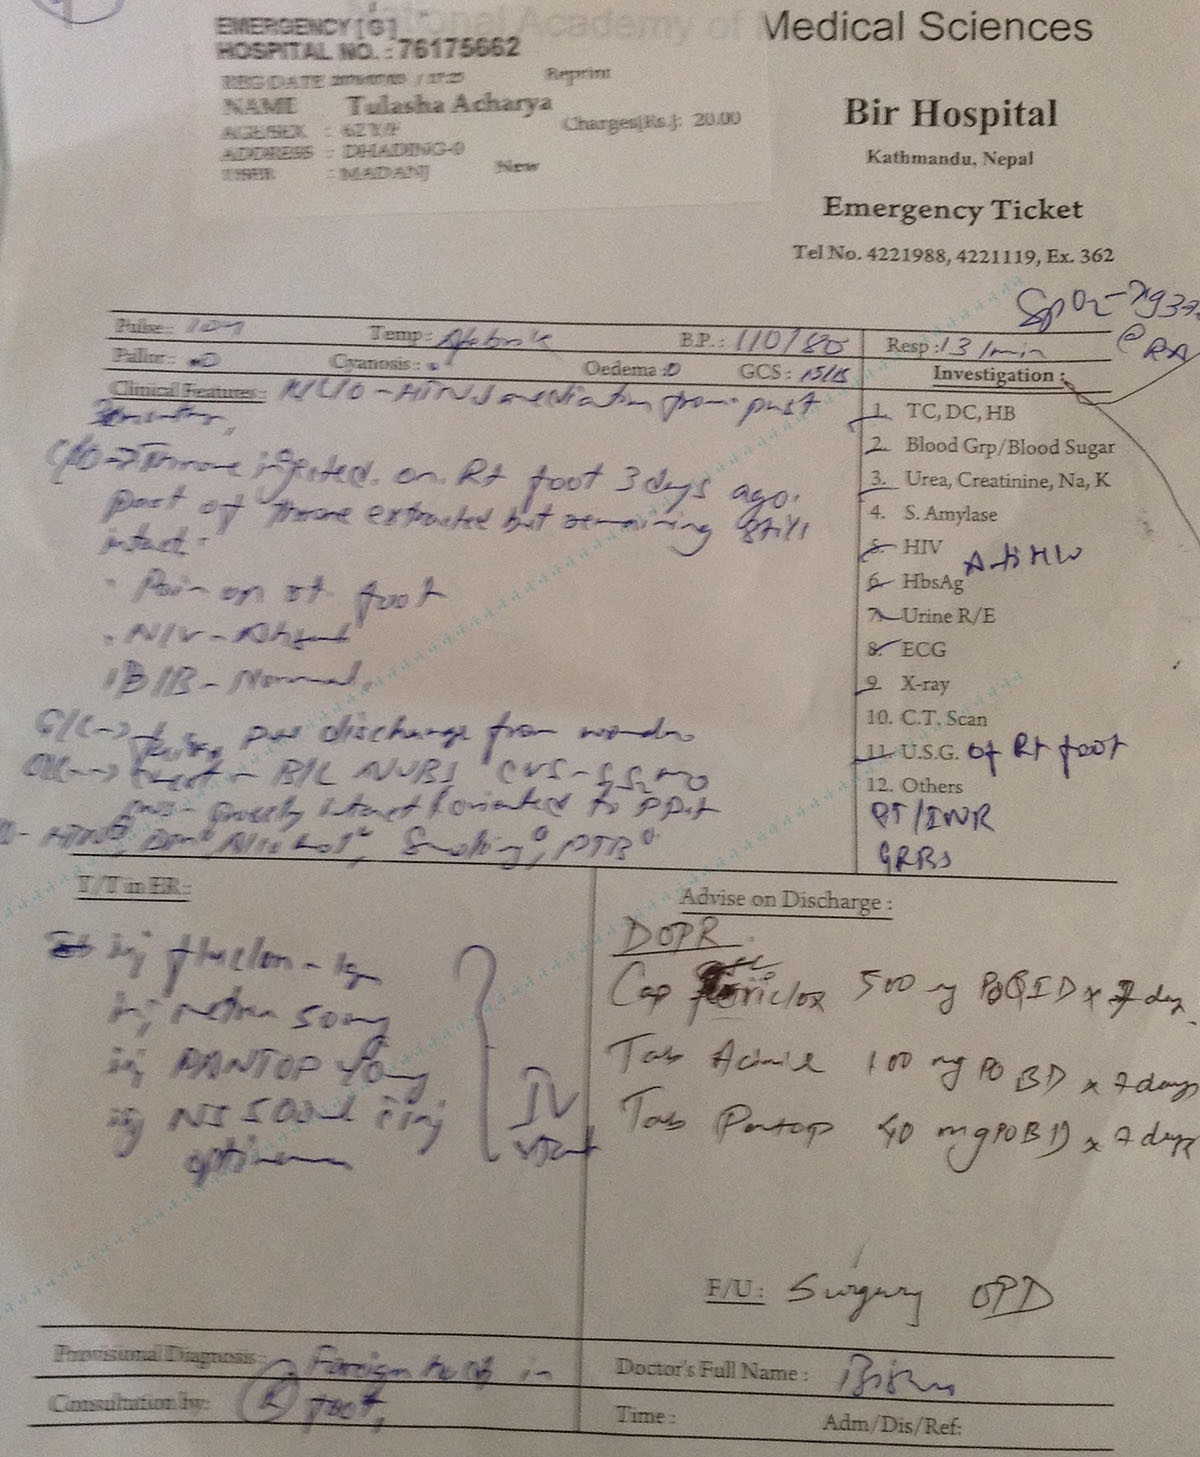 National Academy of Medical Sciences
EMERGENCY [G]
HOSPITAL NO. : 76175662
REG DATE Reprint
NAME Tulasha Acharya
AGE/SEX : 62 Y/F Charges[Rs.]: 20.00
ADDRESS : DHADING-0
USER : MADANJ New
Bir Hospital
Kathmandu, Nepal
Emergency Ticket
Tel No. 4221988, 4221119, Ex. 362
SpO2 - 93%
@ RA
Pulse : Temp : Afebrile B.P. : 110/80 Resp : 13/min
Pallor : 0 Cyanosis : 0 Oedema : 0 GCS : 15/15
Investigation :
Clinical Features : K/C/O - HTN medication from past
C/O → injected on Rt foot 3 days ago.
part of extracted but remaining still
intact.
. Pain on rt. foot
. N/V - Absent
B/B - Normal.
pus discharge from wound
chest - B/L NVBS CVS - S1S2 M0
grossly intact oriented to PP&T
HTN Alcohol, Smoking, PTB
1. TC, DC, HB
2. Blood Grp/Blood Sugar
3. Urea, Creatinine, Na, K
4. S. Amylase
5. HIV
6. HbsAg
7. Urine R/E
8. ECG
9. X-ray
10. C.T. Scan
11. U.S.G. of Rt foot
12. Others
PT/INR
GRBS
T/T in ER :
inj fluclon - 1gm
inj 50mg
inj PANTOP 40mg
inj NS 500ml inj
IV
stat
Advise on Discharge :
DOPR
Cap 500 mg PO QID x 7 days
Tab 100 mg PO BD x 7 days
Tab Pantop 40 mg PO BD x 7 days
F/U : Surgery OPD
Provisional Diagnosis : Foreign body in
R foot,
Consultation by:
Doctor's Full Name :
Time : Adm/Dis/Ref: